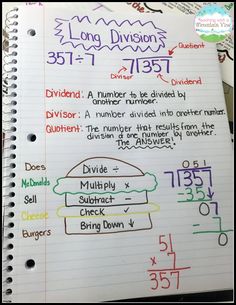 Teaching with a
Mountain View
Long Division
Quotient
357÷7
7 357
Divisor
Dividend
051
Dividend: A number to be divided by
another number.
Divisor: A number divided into another number.
Quotient: The number that results from the
division of one number by another.
The ANSWER!
Does
Divide ÷
McDonalds
Multiply x
Sell
Subtract -
Cheese
Check ✓
Burgers
Bring Down ↓
051
7 357
-35↓
07
- 7
0
51
x 7
357